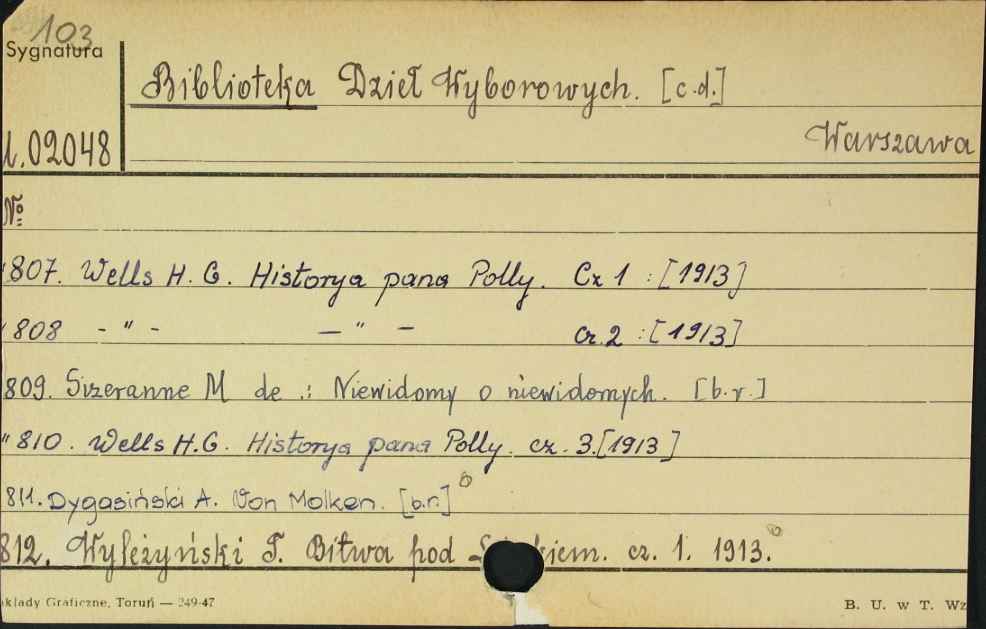 103
Sygnatura
Biblioteka Dzieł Wyborowych. [c.d.]
Warszawa
1.02048
№
807. Wells H. G. Historya pana Polly. Cz 1 : [1913]
808 - " - — " — cz. 2 : [1913]
809. Sizeranne M de .: Niewidomy o niewidomych. [b.r.]
" 810. Wells H.G. Historya pana Polly. cz. 3. [1913]
811. Dygasiński A. Von Molken. [b.r.]
812. Wyleżyński T. Bitwa pod cz. 1. 1913.
akłady Graficzne, Toruń — 249-47
B. U. w T. Wz